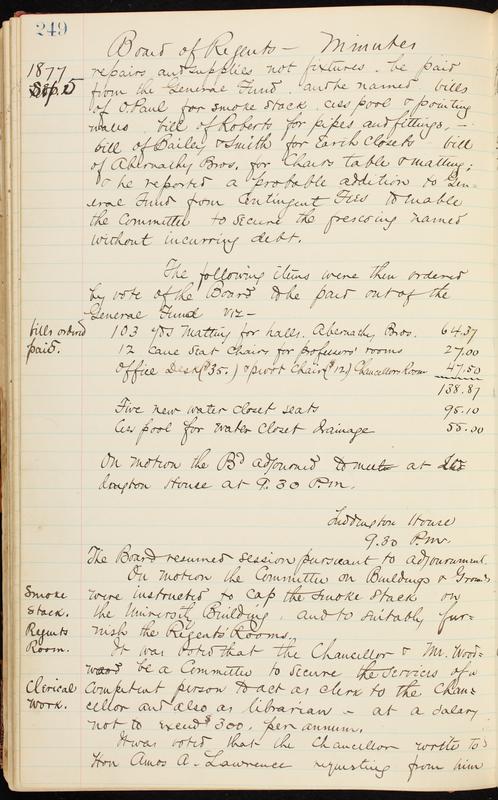 249
Board of Regents — Minutes
1877
Sep. 5
repairs and supplies not fixtures. be paid
from the General Fund. and he named bills
of O Paul for smoke stack, cess pool & pointing
walls bill of Roberts for pipes and fittings, —
bill of Bailey & Smith for Earth Closets bill
of Abernathy Bros. for Chairs table & matting;
& he reported a probable addition to Gen-
eral Fund from Contingent Fees to enable
the Committee to secure the frescoing named
without incurring debt.
The following items were then ordered
by vote of the Board to be paid out of the
General Fund viz —
bills ordered
paid.
103 yds Matting for halls. Abernathy Bros. 64.37
12 Cane Seat Chairs for professors' rooms 27.00
Office Desk ($35.) & pivot Chair ($12) Chancellors Room 47.50
138.87
Five new water closet seats 95.10
Cess pool for water Closet drainage 55.00
On motion the Bd adjourned to meet at
dington House at 9.30 P.m.
Luddington House
9.30 P.m.
The Board resumed session pursuant to adjournment.
On motion the Committee on Buildings & Grounds
Smoke
Stack.
were instructed to cap the smoke stack on
the University Building, and to suitably fur-
Regents
Room.
nish the Regents' Rooms.
It was voted that the Chancellor & Mr. Wood-
ward be a Committee to secure the services of a
Clerical
Work.
Competent person to act as clerk to the Chan-
cellor and also as librarian — at a salary
not to exceed $300. per annum.
It was voted that the Chancellor write to
Hon Amos A. Lawrence requesting from him